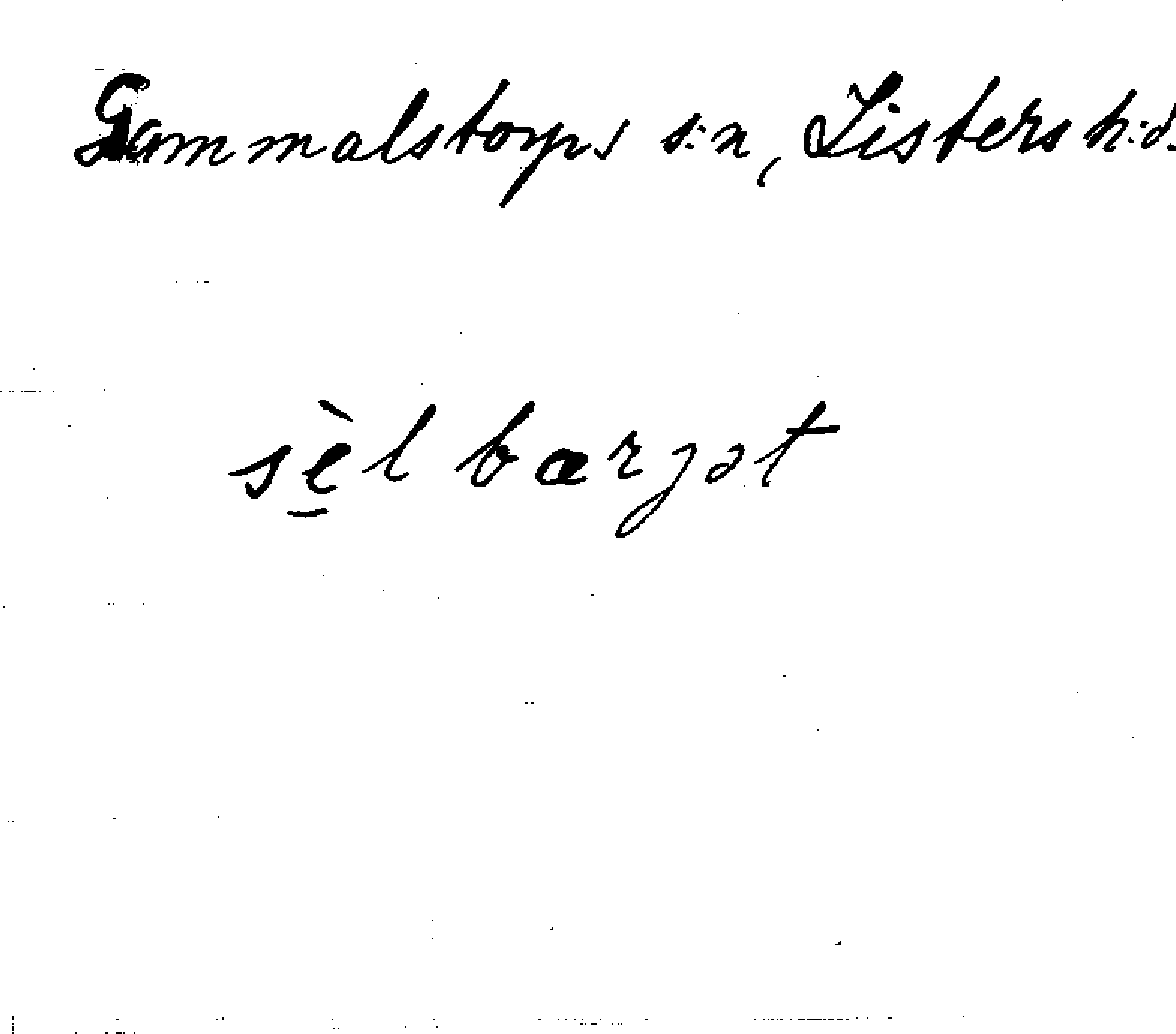 Gammalstorps s:n, Listers h:d.
sè̠l bærjət